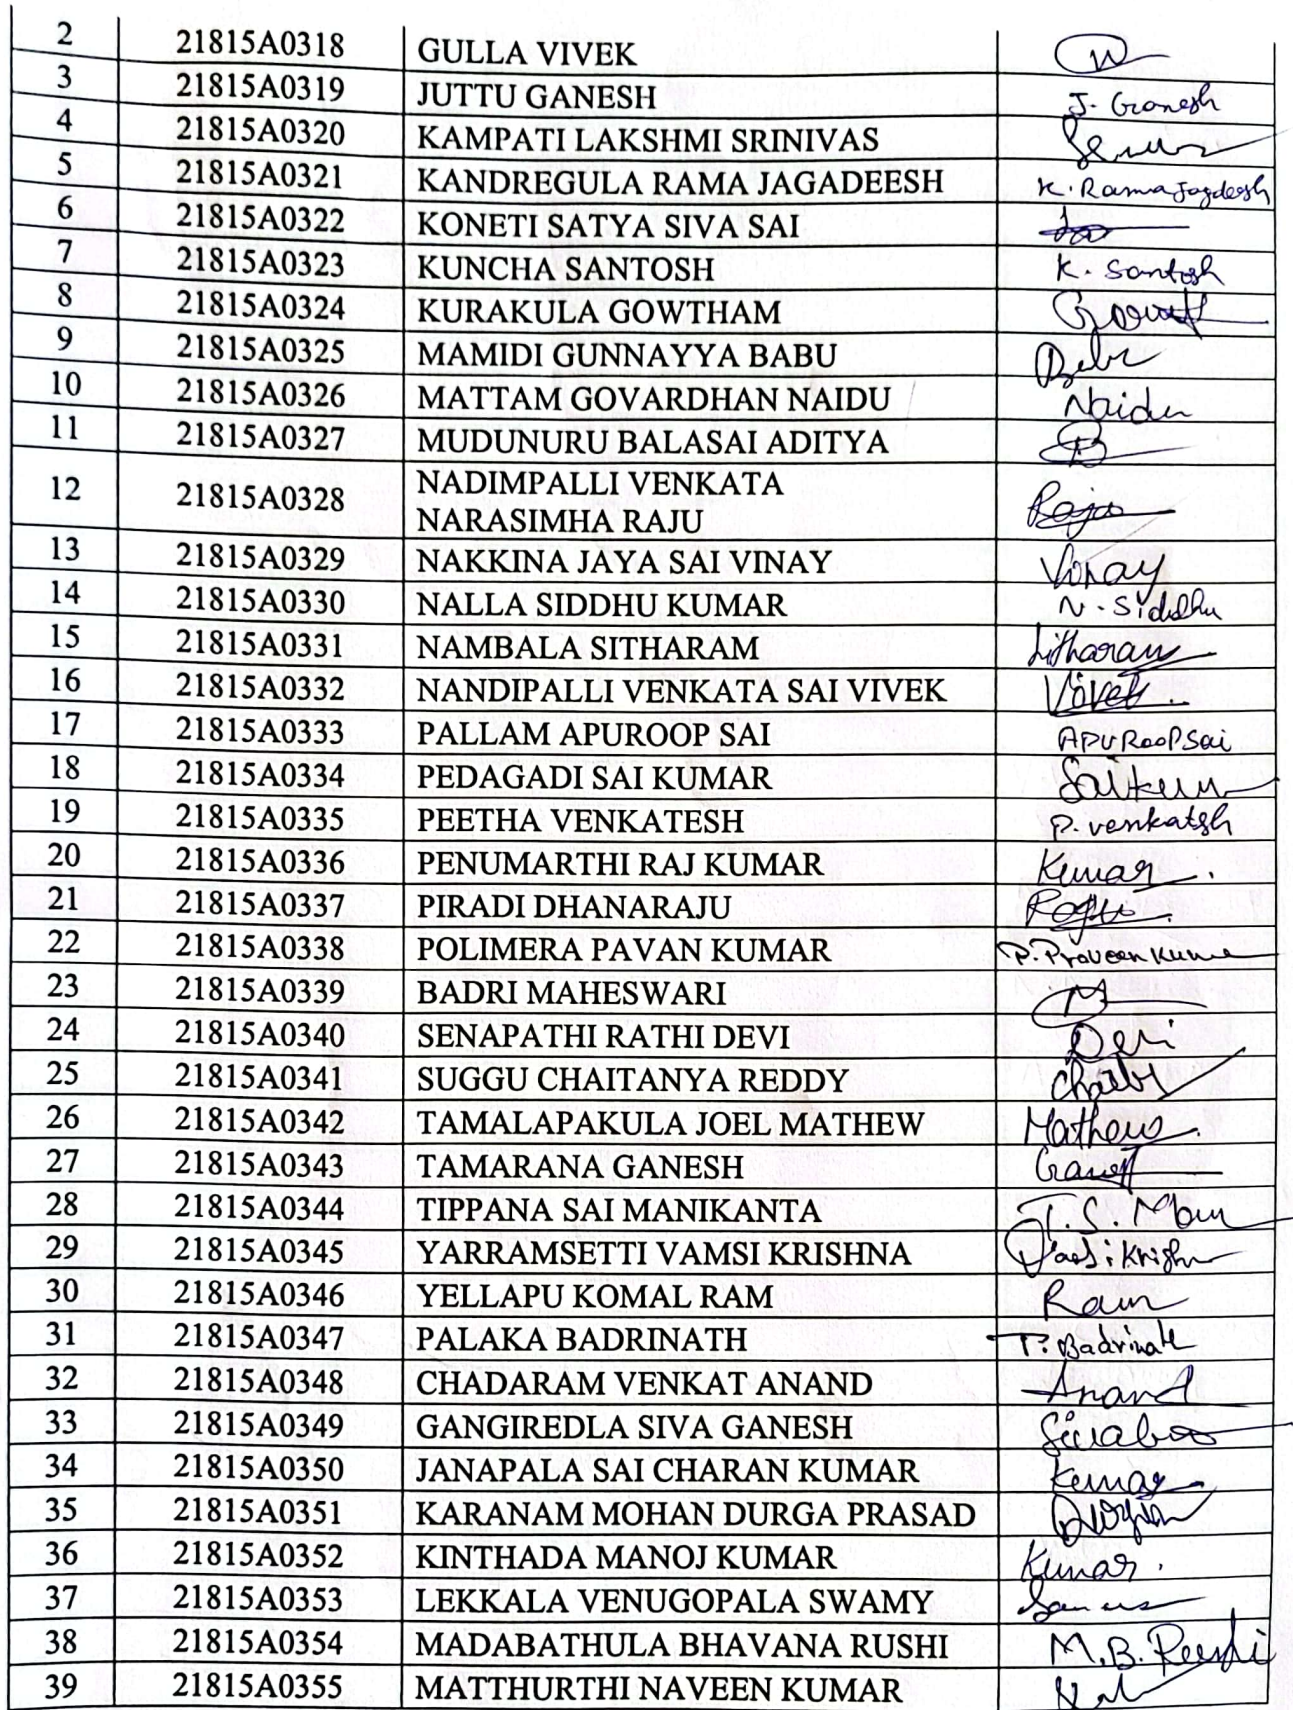 2 21815A0318 GULLA VIVEK
3 21815A0319 JUTTU GANESH J. Ganesh
4 21815A0320 KAMPATI LAKSHMI SRINIVAS
5 21815A0321 KANDREGULA RAMA JAGADEESH K. Rama Jagdeesh
6 21815A0322 KONETI SATYA SIVA SAI
7 21815A0323 KUNCHA SANTOSH K. Santosh
8 21815A0324 KURAKULA GOWTHAM
9 21815A0325 MAMIDI GUNNAYYA BABU
10 21815A0326 MATTAM GOVARDHAN NAIDU Naidu
11 21815A0327 MUDUNURU BALASAI ADITYA
12 21815A0328 NADIMPALLI VENKATA
NARASIMHA RAJU
13 21815A0329 NAKKINA JAYA SAI VINAY Vinay
14 21815A0330 NALLA SIDDHU KUMAR N. Siddhu
15 21815A0331 NAMBALA SITHARAM Sitharam
16 21815A0332 NANDIPALLI VENKATA SAI VIVEK Vivek
17 21815A0333 PALLAM APUROOP SAI APURooP Sai
18 21815A0334 PEDAGADI SAI KUMAR
19 21815A0335 PEETHA VENKATESH P. venkatsh
20 21815A0336 PENUMARTHI RAJ KUMAR Kumar.
21 21815A0337 PIRADI DHANARAJU
22 21815A0338 POLIMERA PAVAN KUMAR P. Praveen Kumar
23 21815A0339 BADRI MAHESWARI
24 21815A0340 SENAPATHI RATHI DEVI Devi
25 21815A0341 SUGGU CHAITANYA REDDY
26 21815A0342 TAMALAPAKULA JOEL MATHEW Mathew.
27 21815A0343 TAMARANA GANESH
28 21815A0344 TIPPANA SAI MANIKANTA T. S. Mani
29 21815A0345 YARRAMSETTI VAMSI KRISHNA
30 21815A0346 YELLAPU KOMAL RAM Ram
31 21815A0347 PALAKA BADRINATH P. Badrinath
32 21815A0348 CHADARAM VENKAT ANAND Anand
33 21815A0349 GANGIREDLA SIVA GANESH
34 21815A0350 JANAPALA SAI CHARAN KUMAR Kumar
35 21815A0351 KARANAM MOHAN DURGA PRASAD
36 21815A0352 KINTHADA MANOJ KUMAR Kumar.
37 21815A0353 LEKKALA VENUGOPALA SWAMY
38 21815A0354 MADABATHULA BHAVANA RUSHI M.B. Rushi
39 21815A0355 MATTHURTHI NAVEEN KUMAR